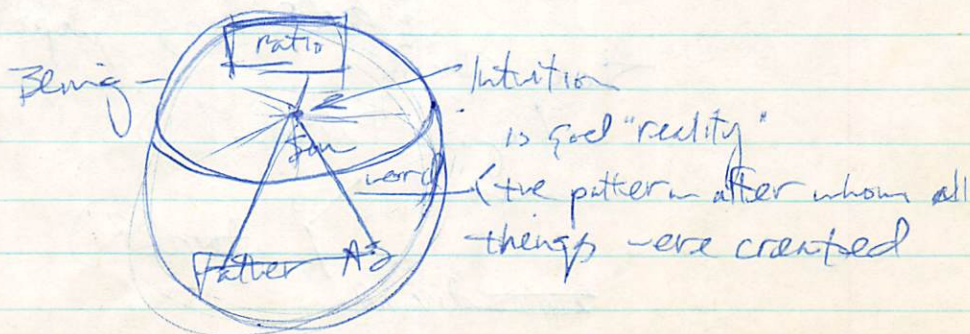 ratio
Being
Intuition
is god "reality"
Son
word
(the pattern after whom all
things are created
Father HS